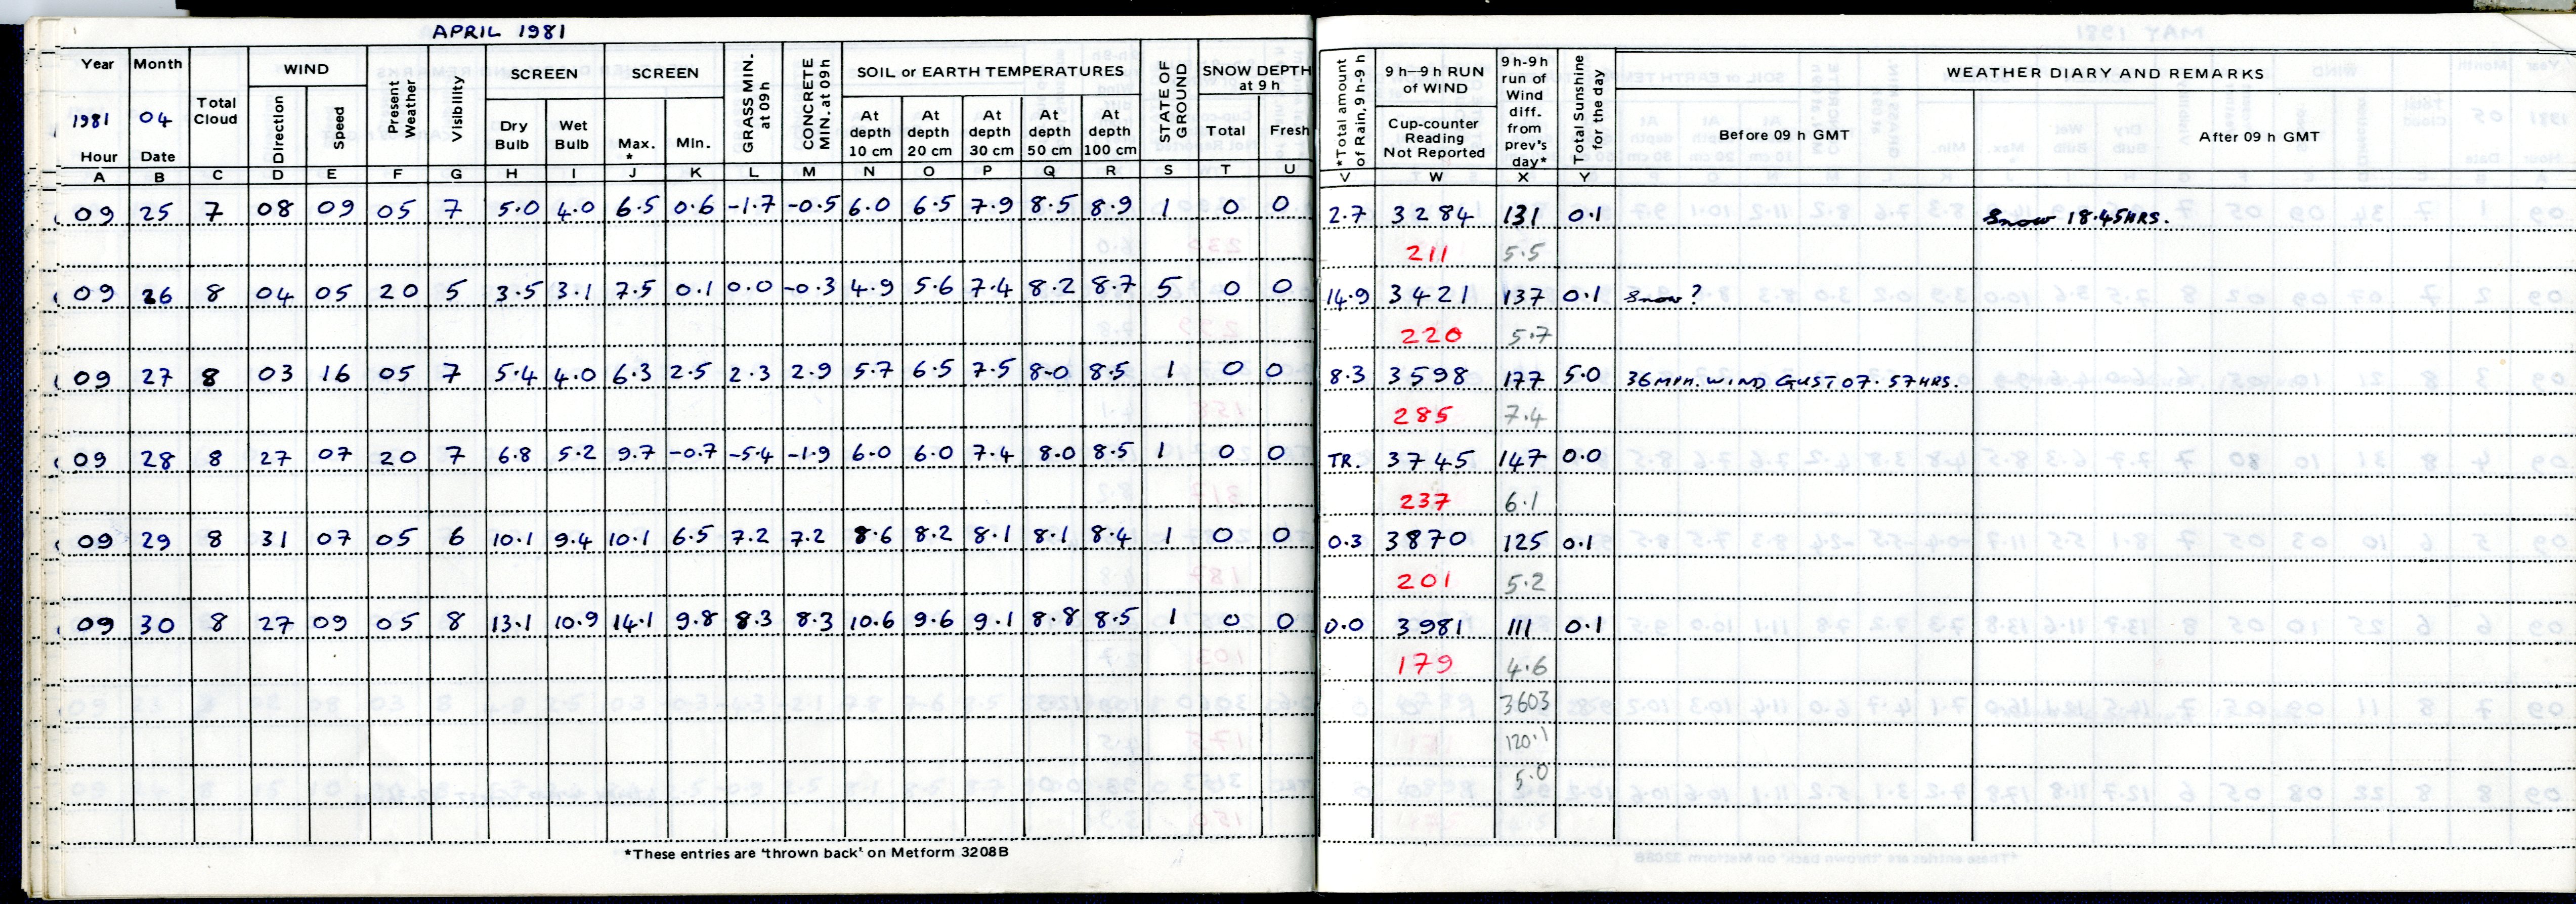 APRIL 1981
Year Month Total Cloud WIND Direction Speed Present Weather Visibility SCREEN Dry Bulb Wet Bulb SCREEN Max. * Min. GRASS MIN. at 09h CONCRETE MIN. at 09h SOIL or EARTH TEMPERATURES At depth 10 cm At depth 20 cm At depth 30 cm At depth 50 cm At depth 100 cm STATE OF GROUND SNOW DEPTH at 9 h Total Fresh *Total amount of Rain, 9h-9h 9 h—9 h RUN of WIND Cup-counter Reading Not Reported 9h-9h run of Wind diff. from prev's day* Total Sunshine for the day WEATHER DIARY AND REMARKS Before 09 h GMT After 09 h GMT
1981 04
Hour Date
A B C D E F G H I J K L M N O P Q R S T U V W X Y
09 25 7 08 09 05 7 5.0 4.0 6.5 0.6 -1.7 -0.5 6.0 6.5 7.9 8.5 8.9 1 0 0 2.7 3284 131 0.1 Snow 18.45HRS.
211 5.5
09 26 8 04 05 20 5 3.5 3.1 7.5 0.1 0.0 -0.3 4.9 5.6 7.4 8.2 8.7 5 0 0 14.9 3421 137 0.1 Snow?
220 5.7
09 27 8 03 16 05 7 5.4 4.0 6.3 2.5 2.3 2.9 5.7 6.5 7.5 8.0 8.5 1 0 0 8.3 3598 177 5.0 36 MPH. WIND GUST 07.57HRS.
285 7.4
09 28 8 27 07 20 7 6.8 5.2 9.7 -0.7 -5.4 -1.9 6.0 6.0 7.4 8.0 8.5 1 0 0 TR. 3745 147 0.0
237 6.1
09 29 8 31 07 05 6 10.1 9.4 10.1 6.5 7.2 7.2 8.6 8.2 8.1 8.1 8.4 1 0 0 0.3 3870 125 0.1
201 5.2
09 30 8 27 09 05 8 13.1 10.9 14.1 9.8 8.3 8.3 10.6 9.6 9.1 8.8 8.5 1 0 0 0.0 3981 111 0.1
179 4.6
3603
120.1
5.0
*These entries are 'thrown back' on Metform 3208B